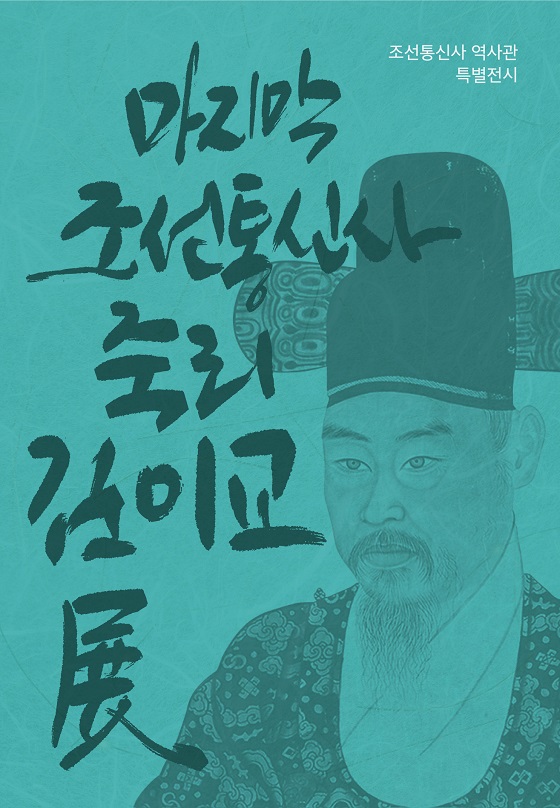 조선통신사 역사관
특별전시
마지막
조선통신사
죽리
김이교
展